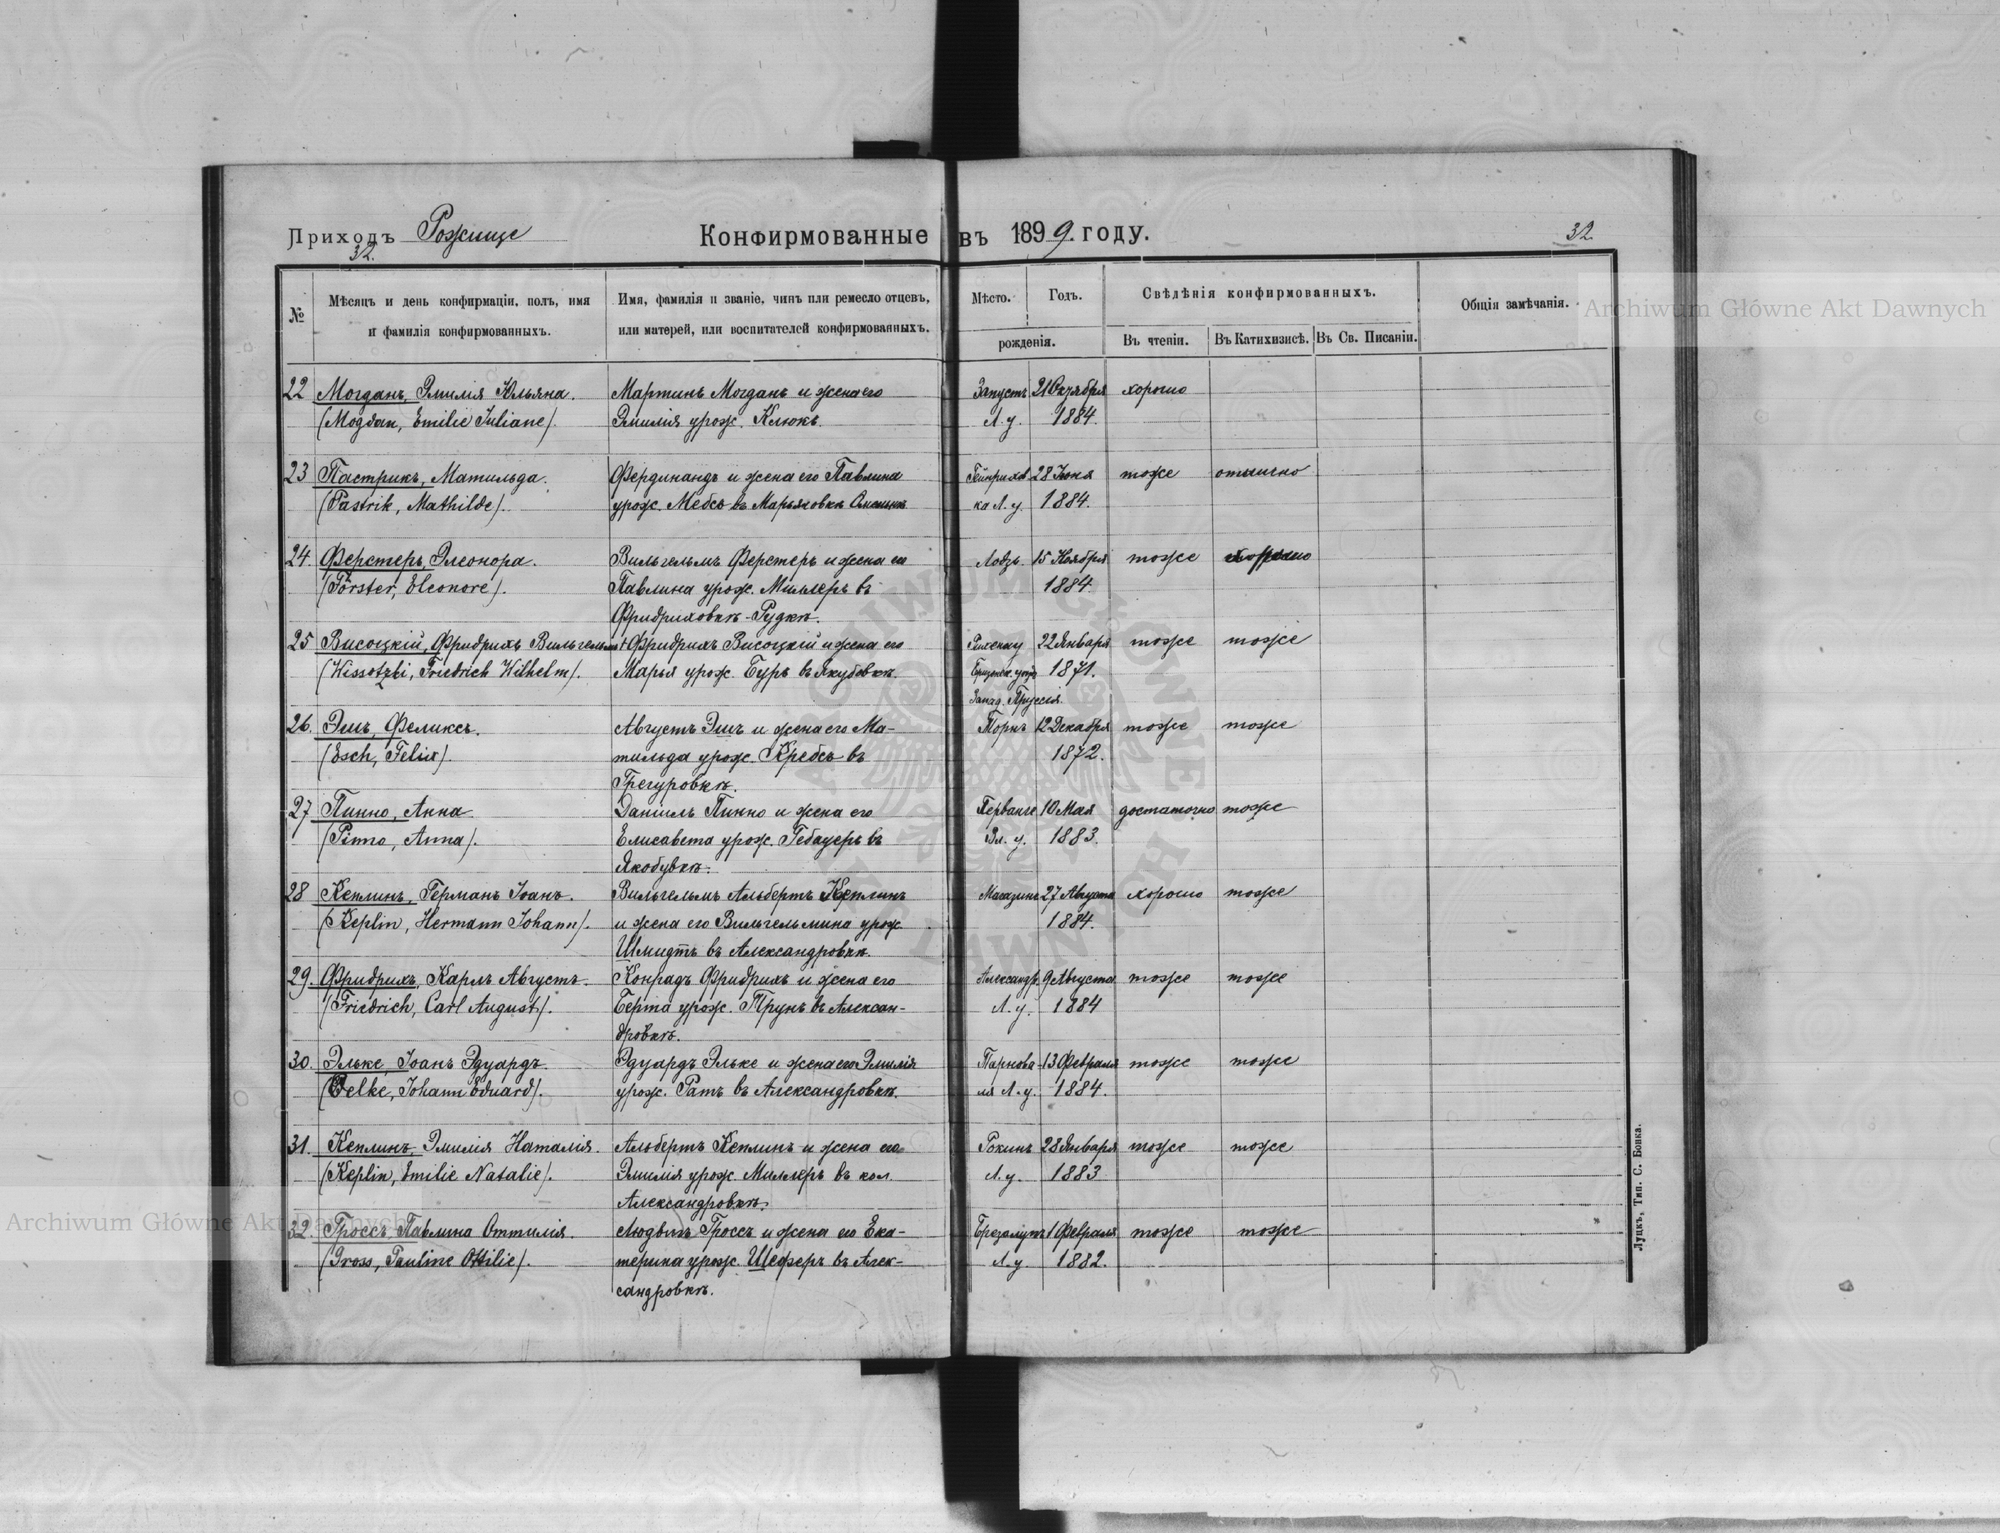 Приходъ Рожище Конфирмованные въ 1899. году. 32
32.
№
Мѣсяцъ и день конфирмаціи, полъ, имя
и фамилія конфирмованныхъ.
Имя, фамилія и званіе, чинъ или ремесло отцевъ,
или матерей, или воспитателей конфирмованныхъ.
Мѣсто. Годъ.
рожденія.
Свѣдѣнія конфирмованныхъ.
Въ чтеніи. Въ Катихизисѣ. Въ Св. Писаніи.
Общія замѣчанія.
Archiwum Główne Akt Dawnych
22 Могданъ, Эмилія Юльяна. Мартинъ Могданъ и жена его Запустъ 21 Октября хорошо
(Mogdan, Emilie Juliane). Эмилія урож. Клюкъ. Л. у. 1884.
23 Пастрикъ, Матильда. Фердинандъ и жена его Павлина 28 Іюня тоже отлично
(Pastrik, Mathilde). урож. Мебсъ въ Марьяновкѣ ка Л. у. 1884.
24. Ферстеръ, Элеонора. Вильгельмъ Ферстеръ и жена его Лодзь. 15 Ноября тоже
(Förster, Eleonore). Павлина урож. Миллеръ въ 1884.
Фридриховкѣ-Рудкѣ.
25 Висоцкій, Фридрихъ Вильгельмъ + Фридрихъ Висоцкій и жена его 22 Января тоже тоже
(Wissotzki, Friedrich Wilhelm). Марья урож. Буръ въ Якубовкѣ. 1871.
Запад. Пруссія.
26. Эшъ, Феликсъ. Августъ Эшъ и жена его Ма- Торнъ 12 Декабря тоже тоже
(Esch, Felix). тильда урож. Кребсъ въ 1872.
Грегуровкѣ.
27 Пинно, Анна Даніилъ Пинно и жена его 10 Мая достаточно тоже
(Pinno, Anna). Елисавета урож. Гебауеръ въ Вл. у. 1883.
Якобувкѣ.
28 Кеплинъ, Германъ Іоанъ. Вильгельмъ Альбертъ Кеплинъ Магазинъ 27 Августа хорошо тоже
(Keplin, Hermann Johann). и жена его Вильгельмина урож. 1884.
Шмидтъ въ Александровкѣ.
29. Фридрихъ, Карлъ Августъ. Конрадъ Фридрихъ и жена его Александр. 9 Августа тоже тоже
(Friedrich, Carl August). Берта урож. Трунъ въ Алексан- Л. у. 1884
дровкѣ.
30. Эльке, Іоанъ Эдуардъ. Эдуардъ Эльке и жена его Эмилія Парнова- 13 Февраля тоже тоже
(Oelke, Johann Eduard). урож. Ратъ въ Александровкѣ. ля Л. у. 1884.
31. Кеплинъ, Эмилія Наталія. Альбертъ Кеплинъ и жена его Рокинъ 28 Января тоже тоже
(Keplin, Emilie Natalie). Эмилія урож. Миллеръ въ кол. Л. у. 1883
Александровкѣ.
32. Гроссъ, Павлина Оттилія. Людвигъ Гроссъ и жена его Ека- 1 Февраля тоже тоже
(Gross, Pauline Ottilie). терина урож. Шеферъ въ Алек- Л. у 1882.
сандровкѣ.
Луцкъ, Тип. С. Бонка.
Archiwum Główne Akt Dawnych
ARCHIWUM GŁÓWNE AKT DAWNYCH